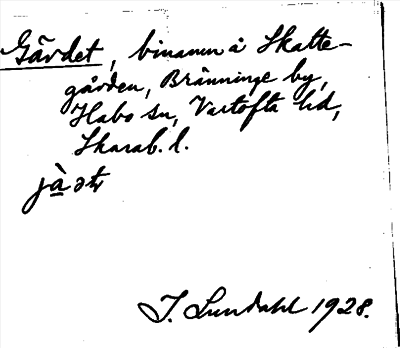 Gärdet, binamn å Skatte-
gården, Bränninge by,
Habo sn, Vartofta hd,
Skarab. l.
jà ətr
I. Lundahl 1928.